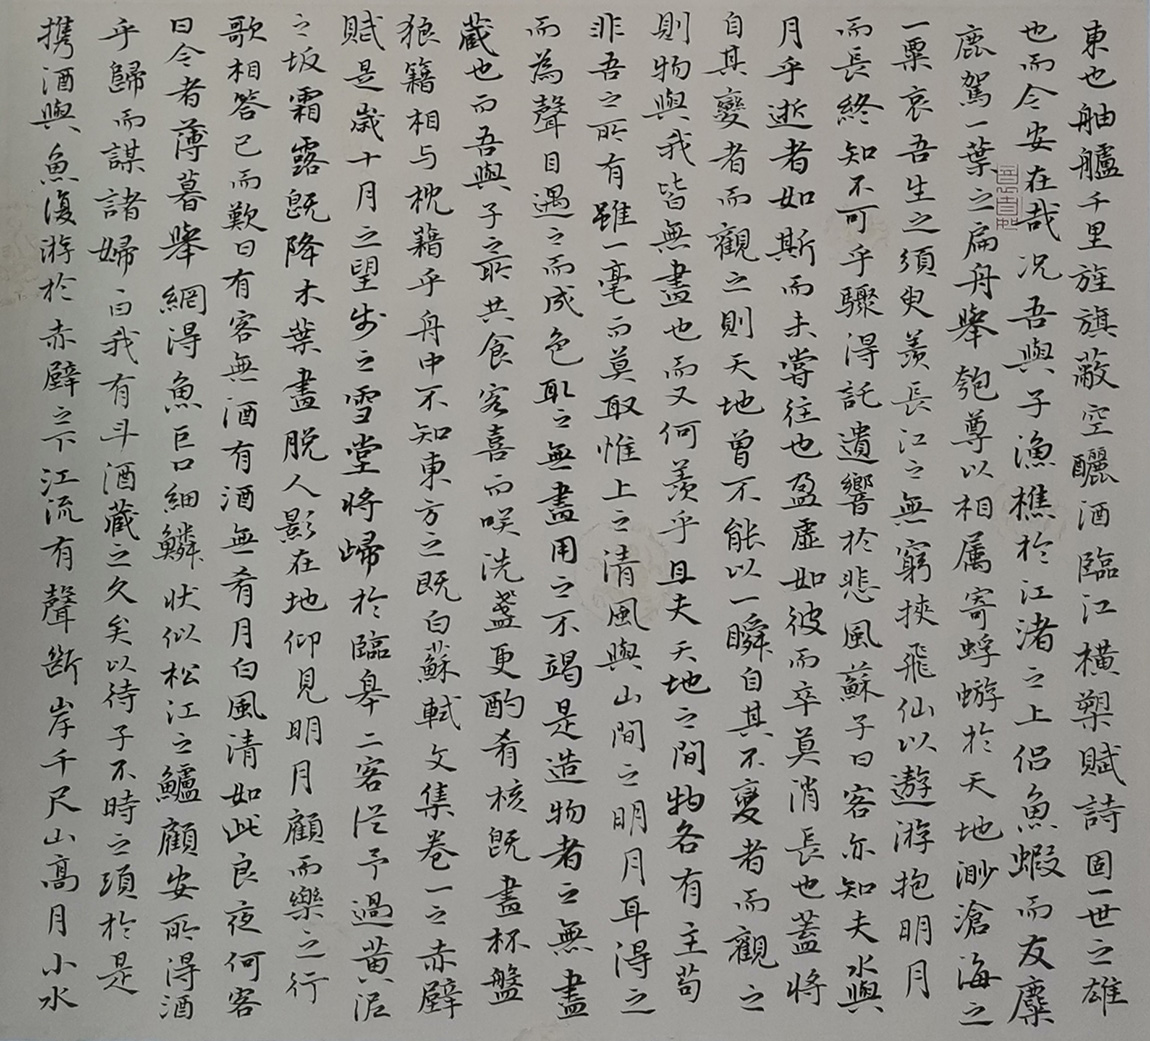 東也舳艫千里旌旗蔽空釃酒臨江橫槊賦詩固一世之雄
也而今安在哉況吾與子漁樵於江渚之上侶魚蝦而友麋
鹿駕一葉之扁舟舉匏尊以相属寄蜉蝣於天地渺滄海之
一粟哀吾生之須臾羨長江之無窮挾飛仙以遨游抱明月
而長終知不可乎驟得託遺響於悲風蘇子曰客亦知夫水與
月乎逝者如斯而未嘗往也盈虛如彼而卒莫消長也蓋將
自其變者而觀之則天地曾不能以一瞬自其不變者而觀之
則物與我皆無盡也而又何羨乎且夫天地之間物各有主苟
非吾之所有雖一毫而莫取惟上之清風與山間之明月耳得之
而為聲目遇之而成色取之無盡用之不竭是造物者之無盡
藏也而吾與子之所共食客喜而咲洗盞更酌肴核既盡杯盤
狼籍相与枕藉乎舟中不知東方之既白蘇軾文集卷一之赤壁
賦是歲十月之望步之雪堂將歸於臨皋二客從予過黄泥
之坂霜露既降木葉盡脱人影在地仰見明月顧而樂之行
歌相答已而歎曰有客無酒有酒無肴月白風清如此良夜何客
曰今者薄暮舉網得魚巨口細鱗状似松江之鱸顧安所得酒
乎歸而謀諸婦曰我有斗酒藏之久矣以待子不時之須於是
携酒與魚復游於赤壁之下江流有聲斷岸千尺山高月小水